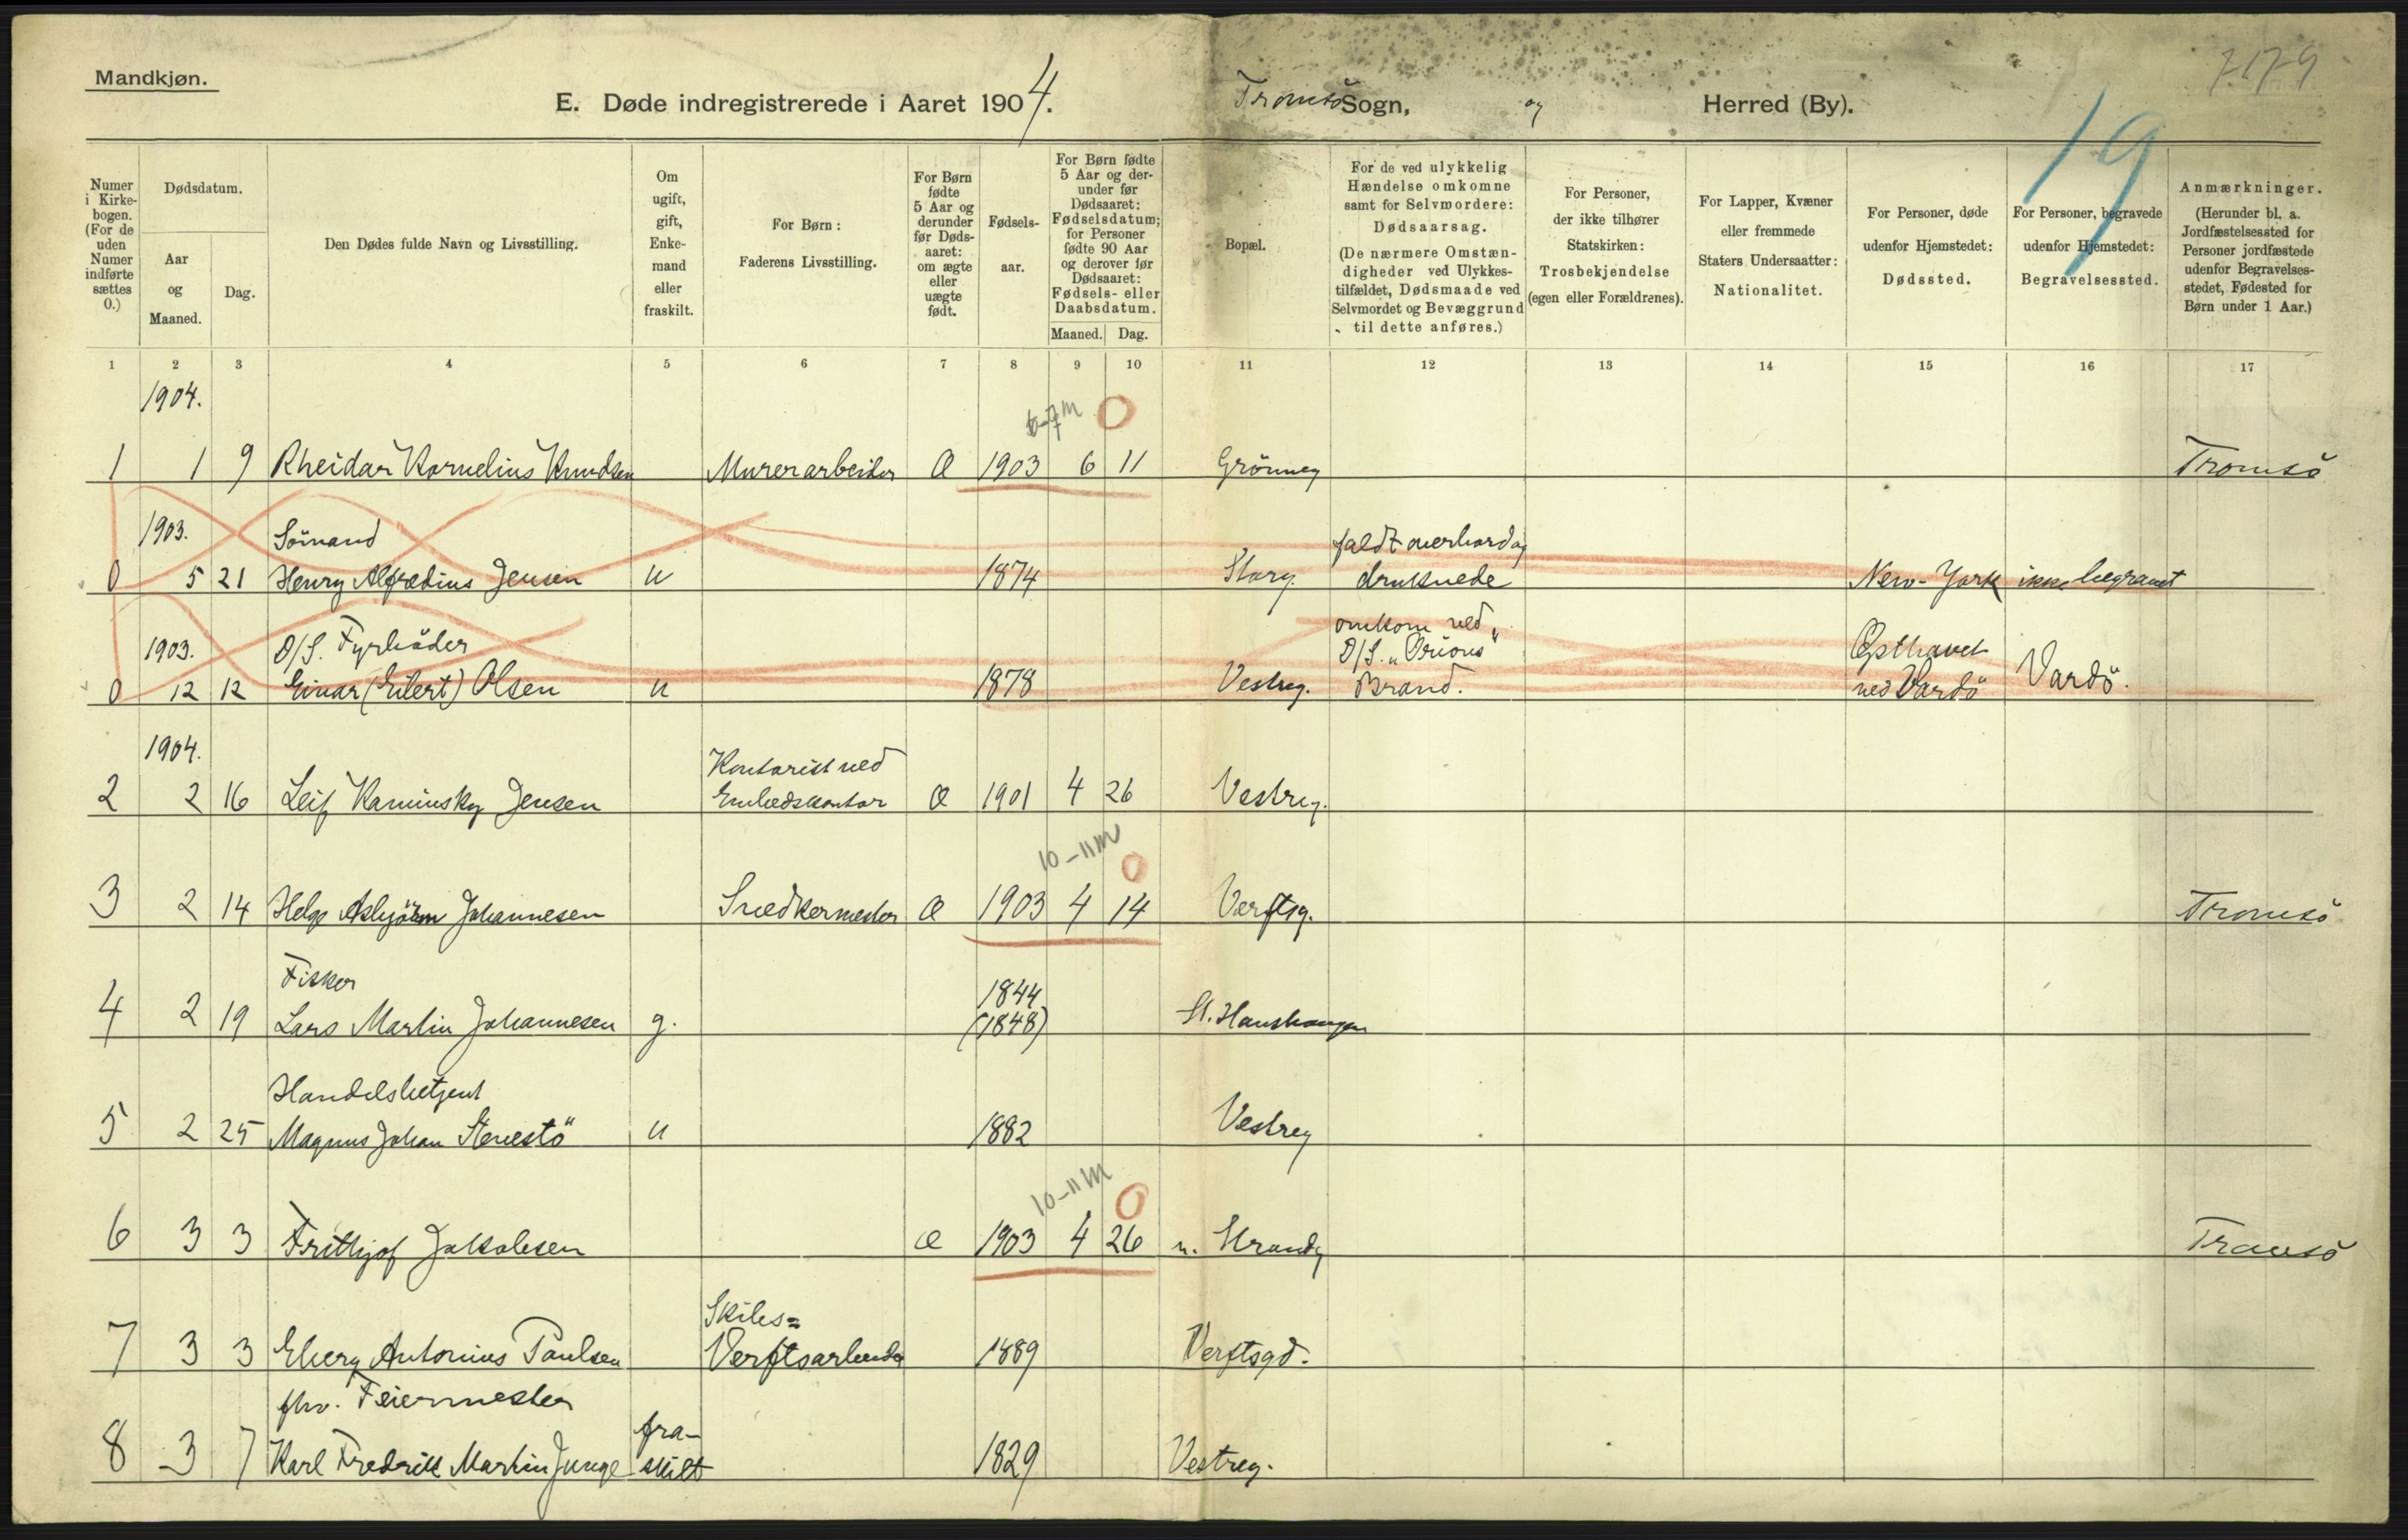 Mandkjøn.
7179
E. Døde indregistrerede i Aaret 1904. Tromsö Sogn, og Herred (By).
19
Numer i Kirke-bogen. (For de uden Numer indførte sættes 0.)
Dødsdatum.
Aar og Maaned.
Dag.
Den Dødes fulde Navn og Livsstilling.
Om ugift, gift, Enke-mand eller fraskilt.
For Børn: Faderens Livsstilling.
For Børn fødte 5 Aar og derunder før Døds-aaret: om ægte eller uægte født.
Fødsels-aar.
For Børn fødte 5 Aar og der-under før Dødsaaret: Fødselsdatum; for Personer fødte 90 Aar og derover før Dødsaaret: Fødsels- eller Daabsdatum.
Maaned. Dag.
Bopæl.
For de ved ulykkelig Hændelse omkomne samt for Selvmordere: Dødsaarsag. (De nærmere Omstæn-digheder ved Ulykkes-tilfældet, Dødsmaade ved Selvmordet og Bevæggrund til dette anføres.)
For Personer, der ikke tilhører Statskirken: Trosbekjendelse (egen eller Forældrenes).
For Lapper, Kvæner eller fremmede Staters Undersaatter: Nationalitet.
For Personer, døde udenfor Hjemstedet: Dødssted.
For Personer, begravede udenfor Hjemstedet: Begravelsessted.
Anmærkninger. (Herunder bl. a. Jordfæstelsessted for Personer jordfæstede udenfor Begravelses-stedet, Fødested for Børn under 1 Aar.)
1 2 3 4 5 6 7 8 9 10 11 12 13 14 15 16 17
1904.
6-7 m 0
1 1 9 Rheidar Kornelius Knudsen Murerarbeider Æ 1903 6 11 Grönneg Tromsö
1903. Sömand faldt overbord og
0 5 21 Henry Alfredius Jensen u 1874 Storg. druknede New-York ikke begravet
1903. D/S. Fyrböder omkom ved D/S. "Orions" Østhavet
0 12 12 Einar (Eilert) Olsen u 1878 Vestreg. Brand. ved Vardö Vardö.
1904. Kontorist ved
2 2 16 Leif Kaminsky Jensen Embedskontor Æ 1901 4 26 Vestreg.
10-11 m 0
3 2 14 Helge Asbjörn Johannesen Snedkermester Æ 1903 4 14 Værftsg. Tromsö
Fisker 1844
4 2 19 Lars Martin Johannesen g. (1848) St. Hanshaugen
Handelsbetjent
5 2 25 Magnus Johan Stenestö u 1882 Vestreg
10-11 m 0
6 3 3 Frithjof Jakobsen Æ 1903 4 26 n. Strandg Tromsö
Skibs=
7 3 3 Eberg Antonius Paulsen Verftsarbeider 1889 Verftsgd.
fhv. Feiermester fra-
8 3 7 Karl Fredrik Martin Junge skilt 1829 Vestreg.